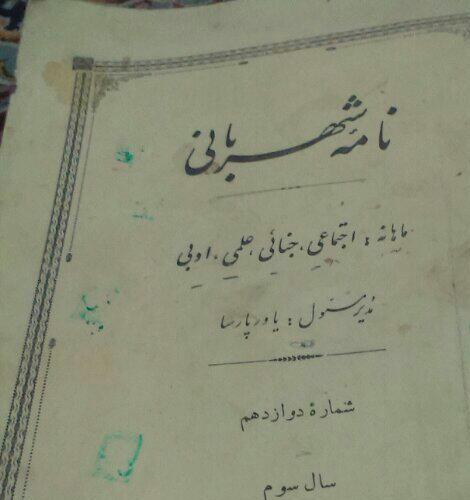 نامه شهربانی
ماهانه : اجتماعی ، جنائی ، علمی ، ادبی
مدیر مسئول : یاور پارسا
شمارهٔ دوازدهم
سال سوم